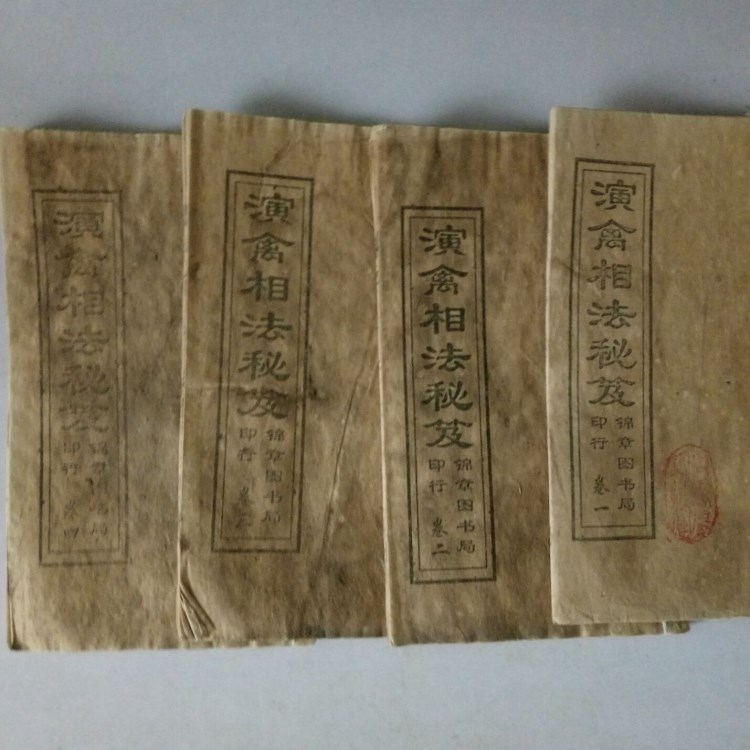 演禽相法秘笈
锦章图书局
印行 卷一
演禽相法秘笈
锦章图书局
印行 卷二
演禽相法秘笈
锦章图书局
印行 卷三
演禽相法秘笈
锦章图书局
印行 卷四